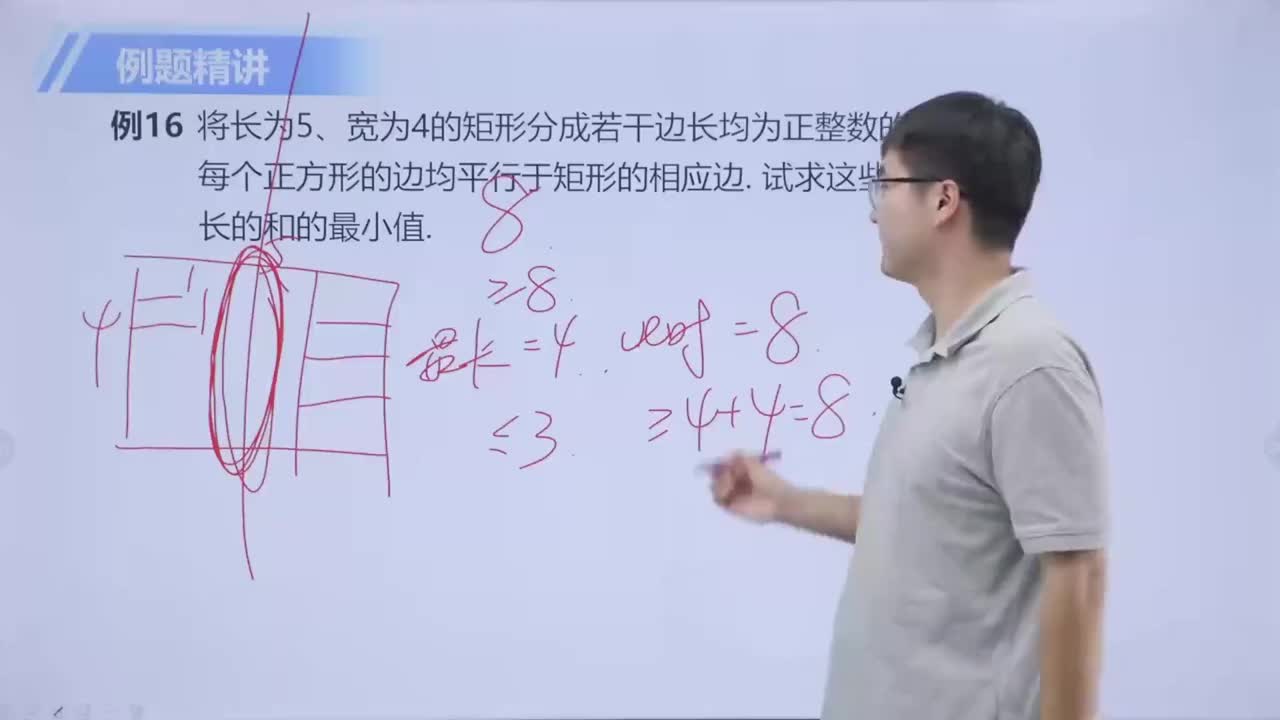 例题精讲
例16 将长为5、宽为4的矩形分成若干边长均为正整数的
每个正方形的边均平行于矩形的相应边. 试求这些
长的和的最小值.
8
5
≥8.
4
1
1
最长=4. 此时=8.
≤3. ≥4+4=8.